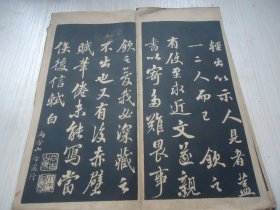 輕出以示人見者蓋
一二人而已欽之
有使至求近文遂親
書以寄多難畏事
欽之愛我必深藏之
不出也又有後赤壁
賦筆倦未能寫當
俟後信軾白